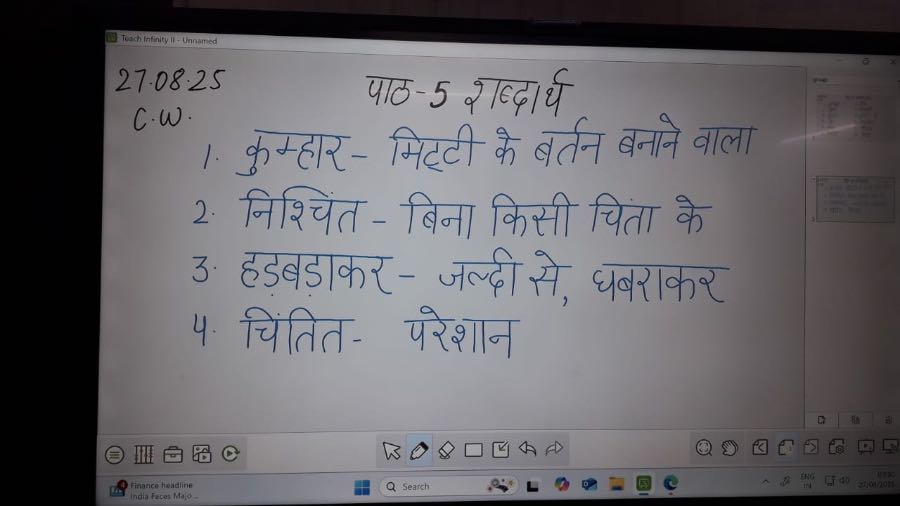 Teach Infinity II - Unnamed
27.08.25
C.W.
पाठ-5 शब्दार्थ
1. कुम्हार - मिट्टी के बर्तन बनाने वाला
2. निश्चिंत - बिना किसी चिंता के
3. हड़बड़ाकर - जल्दी से, घबराकर
4. चिंतित - परेशान
Finance headline
India Faces Majo...
Search
ENG
IN
27/08/2025